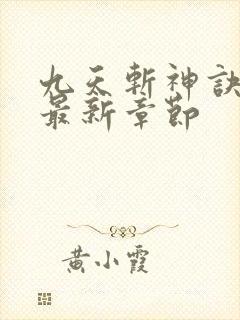 九天斬神訣
最新章節
黄小霞